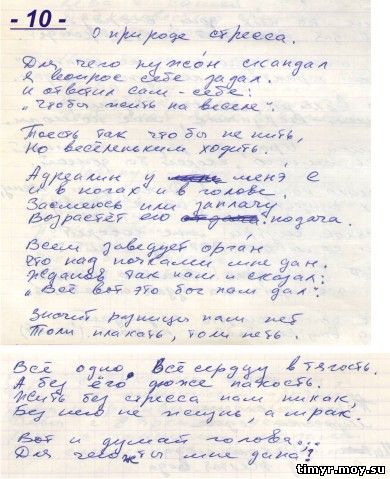 - 10 -
О природе стресса.
Для чего нужо́н скандал
Я вопрос себе задал.
И ответил сам - себе:
„Чтобы жить на веселе".
Поесть так что бы не пить,
Но веселеньким ходить.
Адреалин у менэ е
и в ногах и в голове.
Засмеюсь или заплачу
Возрастёт его подача.
Всем заведует орга́н
Что над почками мне дан.
Жданов так нам и сказал:
„Всё вот это бог нам дал".
Значит разницы нам нет
Толи плакать, толи петь.
Всё одно. Всё сердцу в тягость.
А без его дюже пакость.
Жить без стресса нам никак,
Без него не жизнь, а мрак.
Вот и думай голова...
Для чего ж ты мне дана?
timyr.moy.su